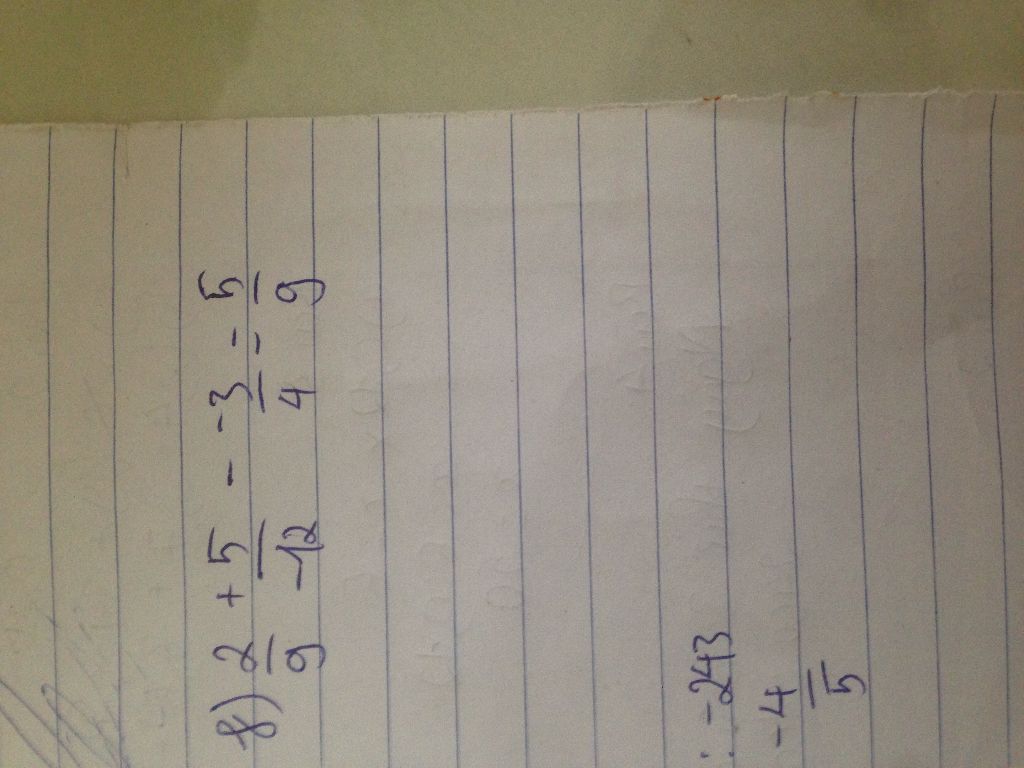 8) 2/9 + 5/-12 - -3/4 = 5/9
: -243
-4/5